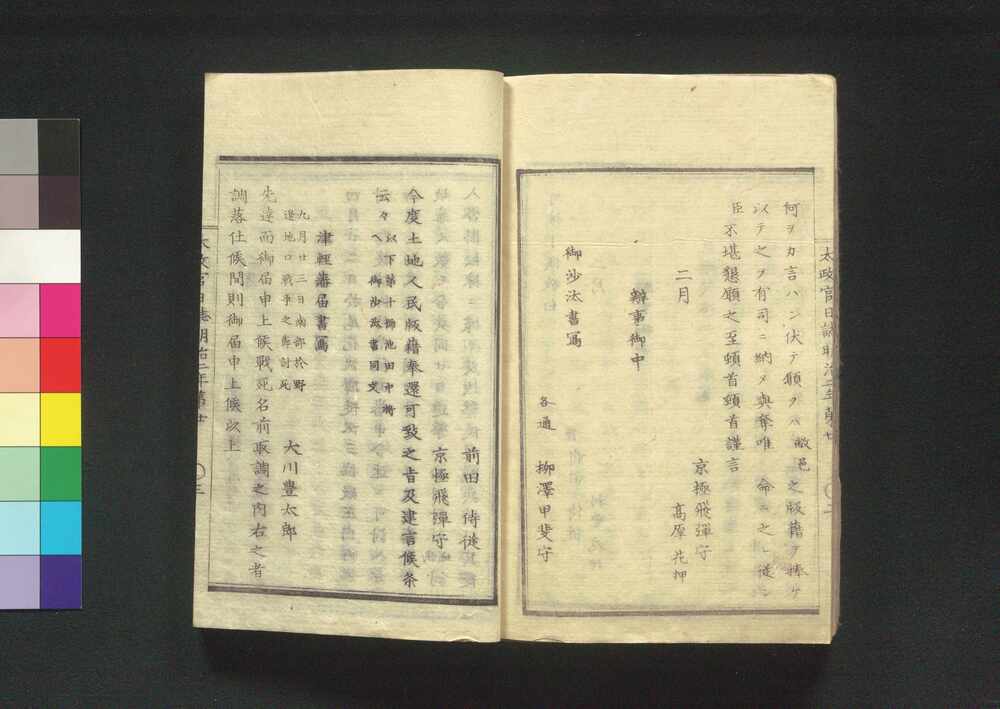 何ヲカ言ハン伏テ願ヲハ敝邑之版籍ヲ捧ケ
以テ之ヲ有司ニ納メ與奪唯命之レ従
臣不堪懇願之至頓首頓首謹言
二月
京極飛彈守
高厚花押
辨事御中
御沙汰書寫
各通
柳澤甲斐守
太政官日誌明治二年第廿
二
前田侍従
京極飛彈守
今度土地人民版籍奉還可致之旨及建言候条
云々ヘ以下第十御池田中将
御沙汰書同文
津輕藩届書寫
九月廿三日南部於野
邊地口戰爭之砌討死
大川豊太郎
先達而御届申上候戰死名前取調之内右之者
調落仕候間則御届申上候以上
太政官日誌明治二年第廿
三